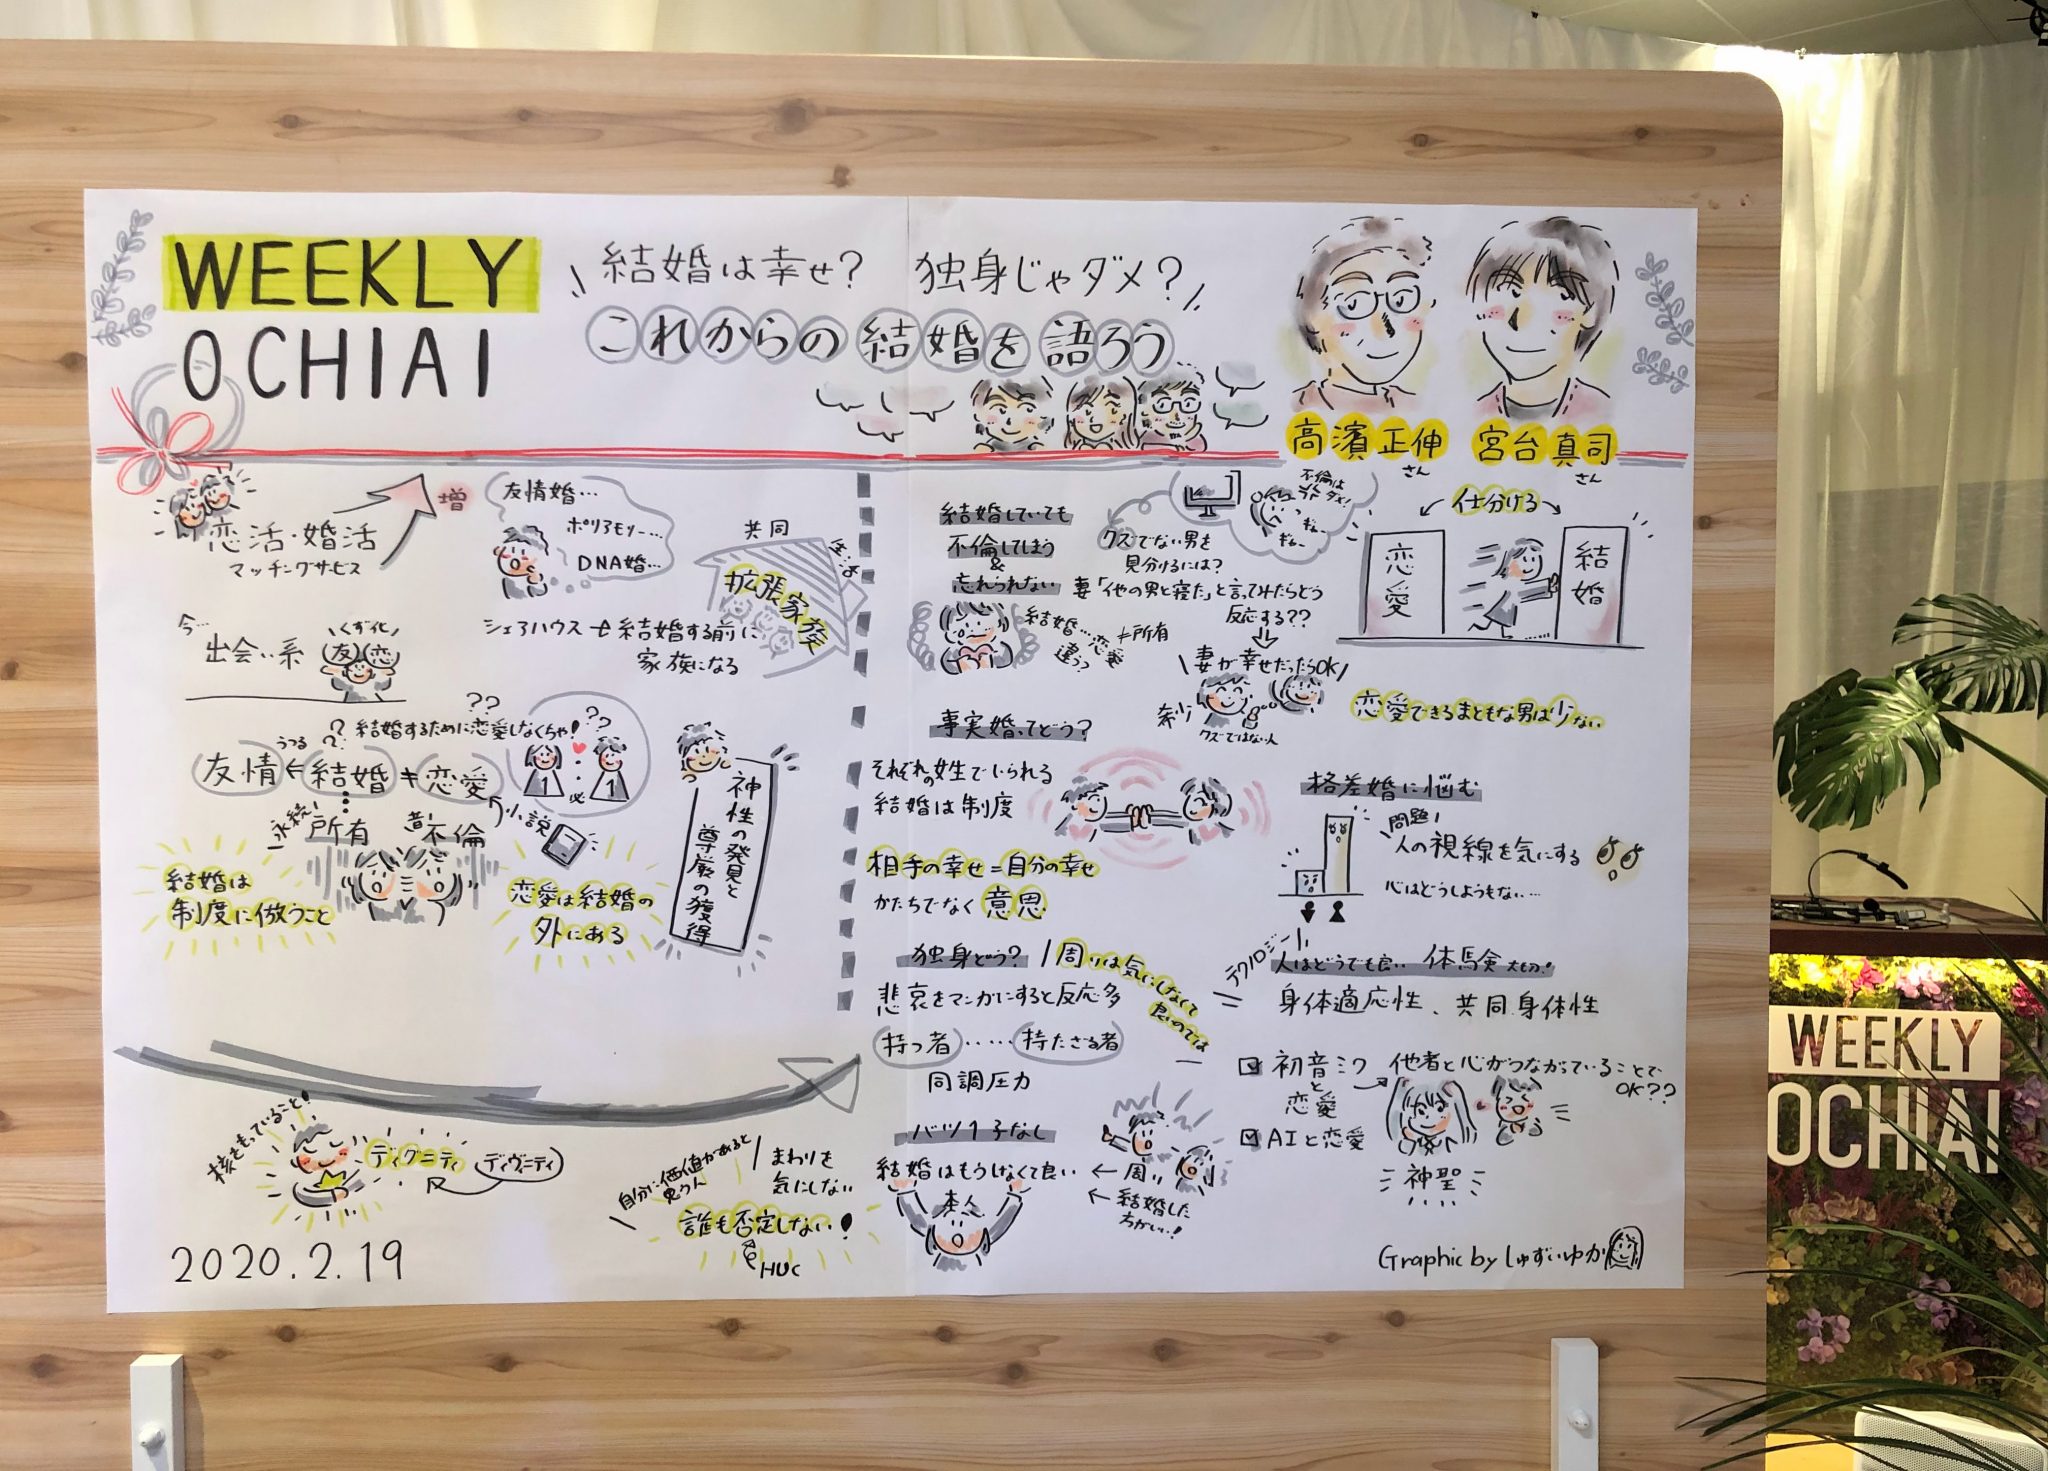 WEEKLY
OCHIAI
結婚は幸せ? 独身じゃダメ?
これからの結婚を語ろう
高濱正伸
さん
宮台真司
さん
恋活・婚活
マッチングサービス
増
友情婚…
ポリアモリー…
DNA婚…
共同
拡張家族
シェアハウス
結婚する前に
家族になる
今…
出会い系
くず化
友
恋
??
結婚するために恋愛しなくちゃ!
??
うつる
?
?
友情←結婚≠恋愛
1
必
1
永続!
所有
昔
不倫
小説
結婚は
制度に倣うこと
恋愛は結婚の
外にある
神性の発見と
尊厳の獲得
核をもっていること!
ディグニティ
ディヴニティ
自分に価値があると
思う人
まわりを
気にしない
誰も否定しない!
HUC
2020.2.19
結婚していても
不倫してしまう
&
忘れられない
結婚…恋愛
≠所有
違う?
不倫は
ダメ!
クズでない男を
見分けるには?
妻「他の男と寝た」と言ってみたらどう
反応する??
妻が幸せだったらOK
クズではない人
仕分ける
恋愛
結婚
恋愛できるまともな男は少ない
事実婚ってどう?
結婚は制度
相手の幸せ=自分の幸せ
かたちでなく意思
格差婚に悩む
問題!
人の視線を気にする
心はどうしようもない…
独身どう?
周りは気にしなくて
良いのでは
悲哀をマンガにすると反応多
持つ者……持たざる者
同調圧力
テクノロジー
人はどうでも良い 体験大切!
身体適応性、共同身体性
初音ミク
と
恋愛
他者と心がつながっていることで
OK??
AIと恋愛
神聖
バツ1子なし
結婚はもうしなくて良い
←周り
←結婚した
方がいい!
本人
Graphic by しゅずいゆか
WEEKLY
OCHIAI